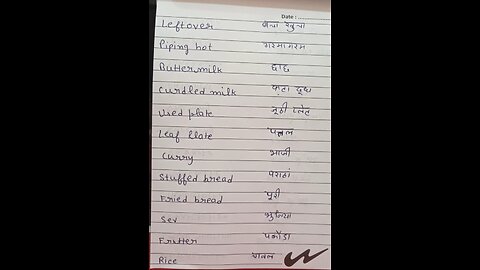 Date : ........
Leftover बचा खुचा
Piping hot गरमा गरम
Butter milk छाछ
Curdled milk फटा दूध
Used plate जूठी प्लेट
Leaf Plate पत्तल
Curry भाजी
Stuffed bread पराठा
Fried bread पूड़ी
Sev भुजिया
Fritter पकौड़ा
Rice चावल